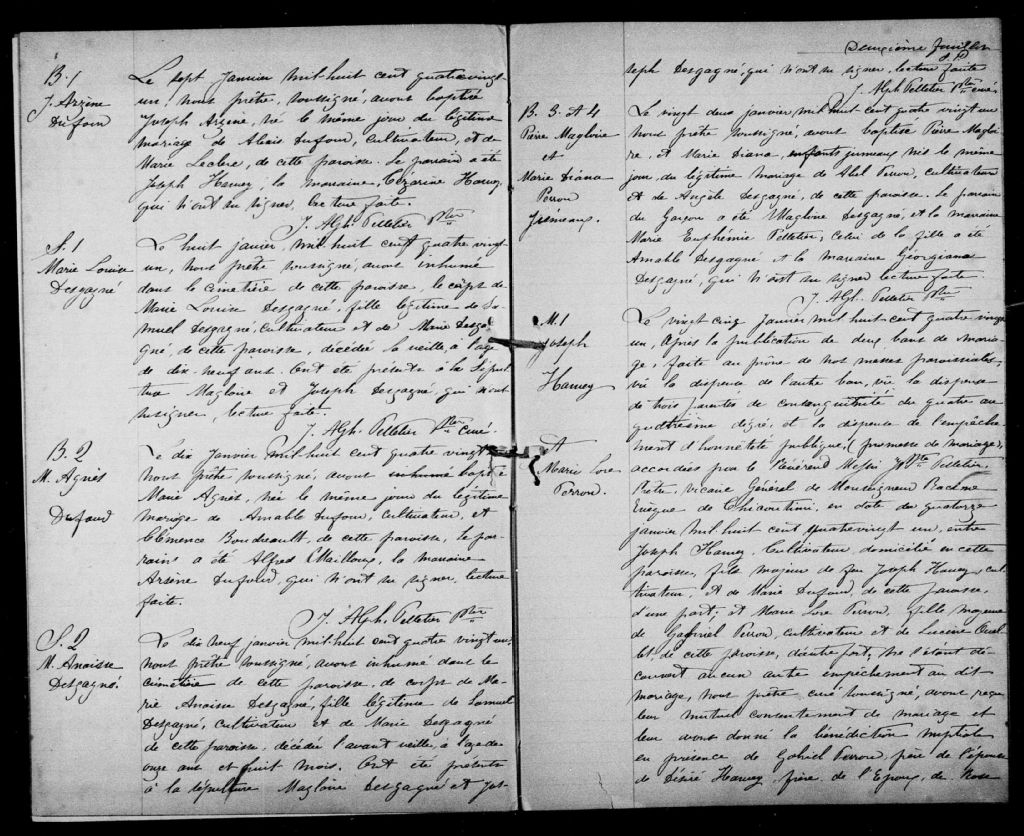 B. 1
J. Arsène
Dufour
Le sept janvier mil huit cent quatre vingt
un, nous prêtre, soussigné, avons baptisé
Joseph Arsène, né le même jour du légitime
mariage de Alexis Dufour, cultivateur, et de
Marie Leclerc, de cette paroisse. Le parrain a été
Joseph Harvey, la marraine, Cézarine Harvey,
qui n'ont su signer, lecture faite.
J. Alph. Pelletier Ptre
S. 1
Marie Louise
Desgagné
Le huit janvier, mil huit cent quatre vingt
un, nous prêtre soussigné, avons inhumé
dans le cimetière de cette paroisse, le corps de
Marie Louise Desgagné, fille légitime de Sa-
muel Desgagné, cultivateur et de Marie Desga-
gné, de cette paroisse, décédée la veille, à l'age
de dix neuf ans. Ont été présents à la Sépul-
ture Magloire et Joseph Desgagné qui n'ont
su signer, lecture faite.
J. Alph. Pelletier Ptre curé.
B. 2
M. Agnès
Dufour
Le dix janvier mil huit cent quatre vingt un
nous prêtre soussigné, avons inhumé baptisé
Marie Agnès, née le même jour du légitime
mariage de Amable Dufour, cultivateur, et
Clémence Boudreault, de cette paroisse, le par-
rain a été Alfred Mailloux, la marraine
Arsène Dufour, qui n'ont su signer, lecture
faite.
J. Alph. Pelletier Ptre
S. 2
M. Anaisse
Desgagné.
Le dix neuf janvier mil huit cent quatre vingt un,
nous prêtre soussigné, avons inhumé dans le
cimetière de cette paroisse, le corps de Ma-
rie Anaisse Desgagné, fille légitime de Samuel
Desgagné, cultivateur et de Marie Desgagné
de cette paroisse, décédée l'avant veille, à l'age de
onze ans et huit mois. Ont été présents
à la sépulture Magloire Desgagné et Jos-
Deuxième feuillet
seph Desgagné, qui n'ont su signer, lecture faite
J. Alph. Pelletier Ptre curé.
B. 3. et 4
Pierre Magloire
et
Marie Diana
Perron
Jumeaux.
Le vingt deux janvier mil huit cent quatre vingt un
nous prêtre soussigné, avons baptisé Pierre Magloi-
re, et Marie Diana, enfants jumeaux nés le même
jour, du légitime mariage de Abel Perron, cultivateur
et de Angèle Desgagné, de cette paroisse. le parrain
du Garçon a été Magloire Desgagné, et la marraine
Marie Euphémie Pelletier; celui de la fille a été
Amable Desgagné et la marraine Georgiana
Desgagné, qui n'ont su signer lecture faite
J. Alph. Pelletier Ptre
M. 1
Joseph
Harvey
et
Marie Lore
Perron.
Le vingt cinq janvier mil huit cent quatre vingt
un, Après la publication de deux bans de maria-
ge, faite au prône de nos messes paroissiales,
vu la dispense de l'autre ban, vu la dispense
de trois parentés de consanguinité du quatre au
quatrième degré, et la dispense de l'empêche-
ment d'honnêteté publique, (promesse de mariage),
accordées par le Révérend Messire Pelletier,
Prêtre, vicaire Général de Monseigneur Racine
Evêque de Chicoutimi, en date du quatorze
janvier mil huit cent quatre vingt un, entre
Joseph Harvey, Cultivateur, domicilié en cette
paroisse, fils majeur de feu Joseph Harvey, cul-
tivateur, et de Marie Dufour, de cette paroisse,
d'une part; et Marie Lore Perron, fille majeure
de Gabriel Perron, cultivateur et de Lucine
de cette paroisse, d'autre part, ne s'étant dé-
couvert aucun autre empêchement au dit
mariage, nous prêtre curé soussigné, avons reçu
leur mutuel consentement de mariage et
leur avons donné la bénédiction nuptiale
en présence de Gabriel Perron, père de l'épouse
de Désiré Harvey frère de l'Epoux, de Rose